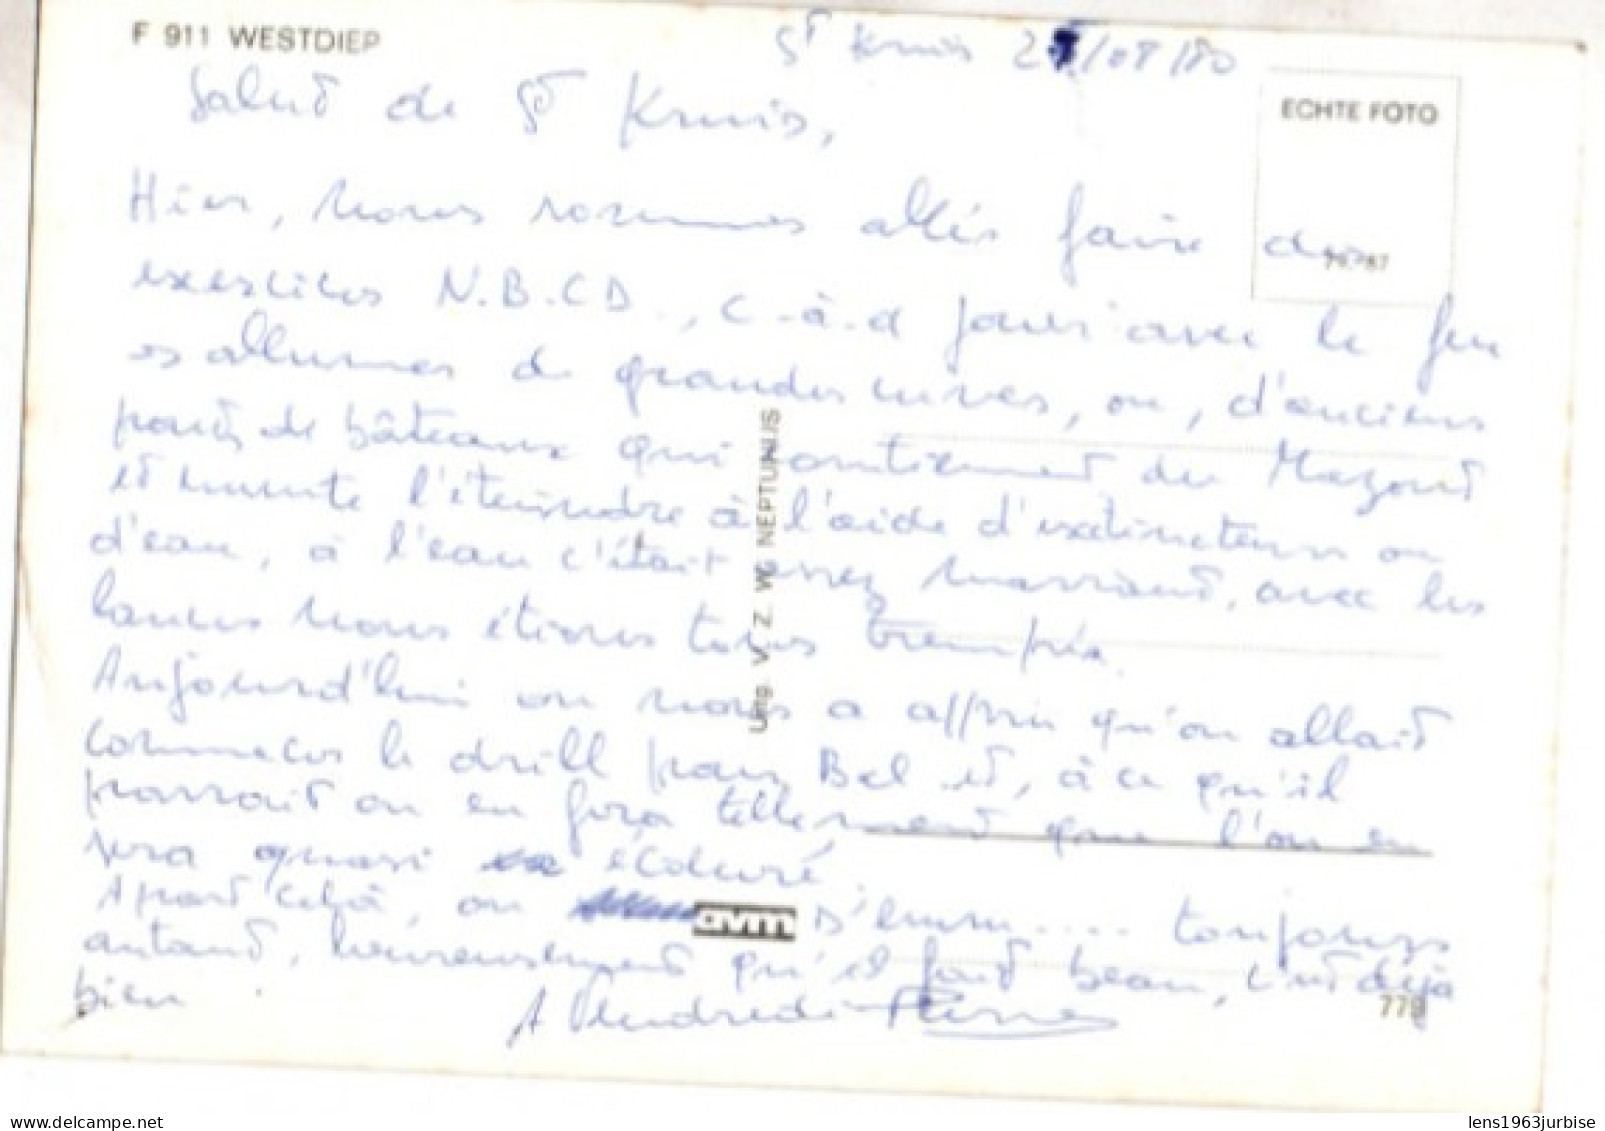 F 911 WESTDIEP
St Kruis 2 /08/80
ECHTE FOTO
Salut de St Kruis,
Hier, nous sommes allés faire des
exercices N.B.C.D., c.-à-d jouer avec le feu
on allumes de grandes cuves, ou, d'anciens
ponts de bâteaux qui contiennent du Mazout
et ensuite l'éteindre à l'aide d'extincteurs ou
d'eau, à l'eau c'était assez marrant, avec les
lances nous étions tous trempés.
Aujourd'hui on nous a appris qu'on allait
commencer le drill pour Bel et, à ce qu'il
parait on en fera tellement que l'on en
sera quasi écoeuré.
Apart celà, on s'emm.... toujours
autant, heureusement qu'il fait beau, c'est déjà
bien
A Vendredi Pierre
Uitg. V. Z. W. NEPTUNUS
avm
779
lens1963jurbise
my.delcampe.net